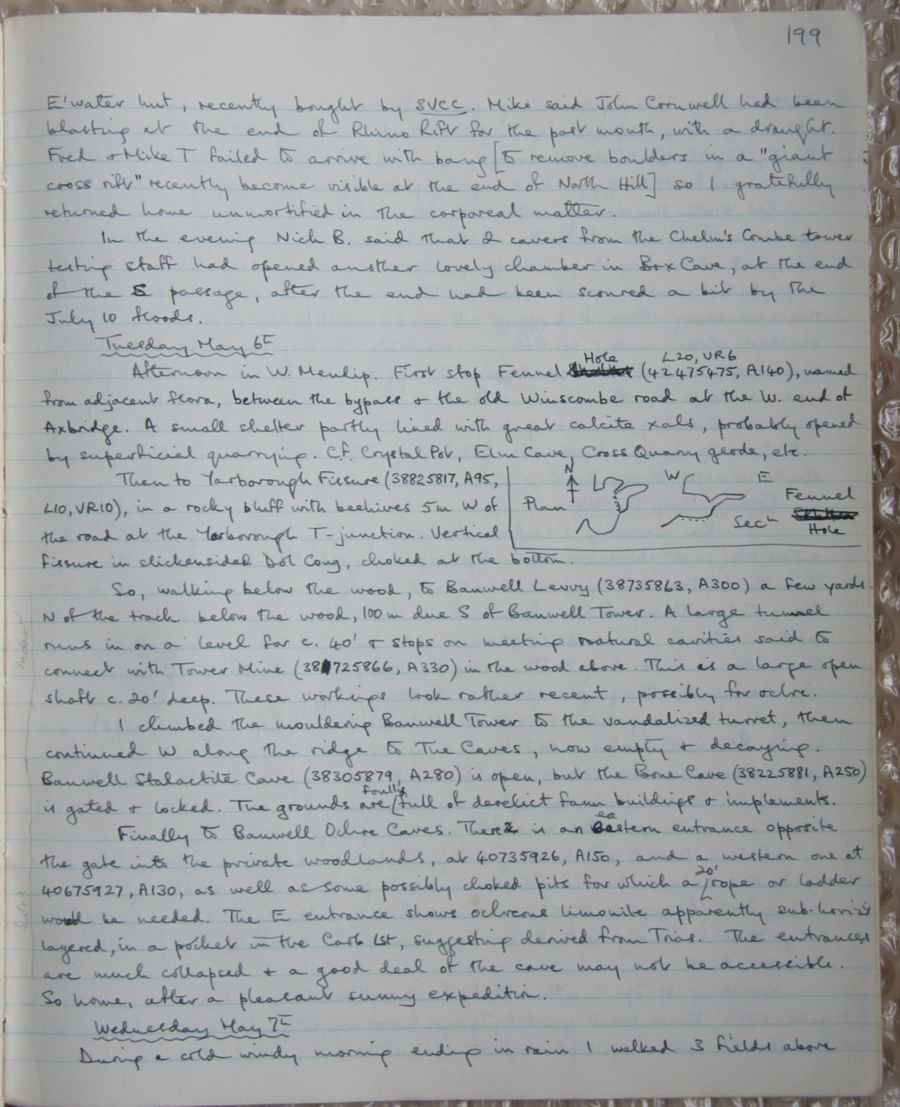 199
E'water hut, recently bought by SVCC. Mike said John Cornwell had been
blasting at the end of Rhino Rift for the past mouth, with a draught.
Fred & Mike T failed to arrive with bang [to remove boulders in a "giant
cross rift" recently become visible at the end of North Hill] so I gratefully
returned home unmortified in the corporeal matter.
In the evening Nich B. said that 2 cavers from the Chelm's Combe tower
testing staff had opened another lovely chamber in Box Cave, at the end
of the S passage, after the end had been scoured a bit by the
July 10 floods.
Tuesday May 6th
Afternoon in W. Mendip. First stop Fennel Hole (42475475, A140), L20, VR6 named
from adjacent flora, between the bypass & the old Winscombe road at the W. end of
Axbridge. A small shelter partly lined with great calcite xals, probably opened
by superficial quarrying. C.f. Crystal Pot, Elm Cave, Cross Quarry geode, etc.
Then to Yarborough Fissure (38825817, A95,
L10, VR10), in a rocky bluff with beehives 5m W of
the road at the Yarborough T-junction. Vertical
fissure in slickensided Dol Cong, choked at the bottom.
N
Plan
W E
Sech
Fennel
Hole
So, walking below the wood, to Banwell Levvy (38735863, A300) a few yards
N of the track below the wood, 100 m due S of Banwell Tower. A large tunnel
runs in on a level for c. 40' & stops on meeting natural cavities said to
connect with Tower Mine (38725866, A330) in the wood above. This is a large open
shaft c. 20' deep. These workings look rather recent, possibly for ochre.
I climbed the mouldering Banwell Tower to the vandalized turret, then
continued W along the ridge to The Caves, now empty & decaying.
Banwell Stalactite Cave (38305879, A280) is open, but the Bone Cave (38225881, A250)
is gated & locked. The grounds are foully full of derelict farm buildings & implements.
Finally to Banwell Ochre Caves. There is an eastern entrance opposite
the gate into the private woodlands, at 40735926, A150, and a western one at
40675927, A130, as well as some possibly choked pits for which a 20' rope or ladder
would be needed. The E entrance shows ochreous limonite apparently sub-horiz'y
layered, in a pocket in the Carb Lst, suggesting derived from Trias. The entrances
are much collapsed & a good deal of the cave may not be accessible.
So home, after a pleasant sunny expedition.
Wednesday May 7th
During a cold windy morning ending in rain I walked 3 fields above